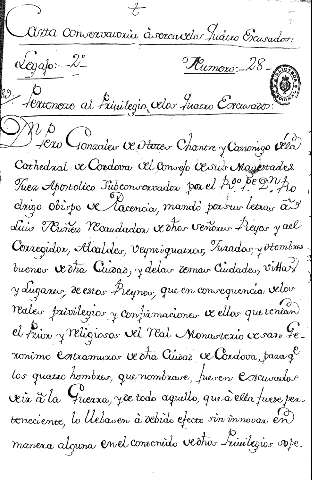 Carta conservatoria àcerca delos Quatro Excusados
Legajo 2º Numero 28
Pertenece al Privilegio delos Quatro Escusados
Dn Pero Gonzalez de Hozes Chantre y Canonigo dela
Cathedral de Cordova del Consejo de sus Magestades
Juez Apostolico Subconservador por el Rdo. P. Dn. Ro
drigo obispo de Placencia, mandó por sus letras à
Luis Nuñez Recaudador de dhos Señores Reyes y al
Corregidor, Alcaldes, Veyntiquatros, Jurados, y Hombres
buenos de dha Ciudad, y delas demas Ciudades, Villas
y Lugares, de estos Reynos, que en consequencia delos
reales privilegios y confirmaciones de ellos que tenian
el Prior y religiosos del Real Monasterio de san Ge
ronimo extramuros de dha Ciudad de Cordova, para qe
los quatro hombres, que nombrase, fuesen escusados
de ir à la Guerra, y de todo aquello, que à ella fuese per
teneciente, lo llebasen à debido efecto sin innovar en
manera alguna en el contenido de dhos Privilegios so pe